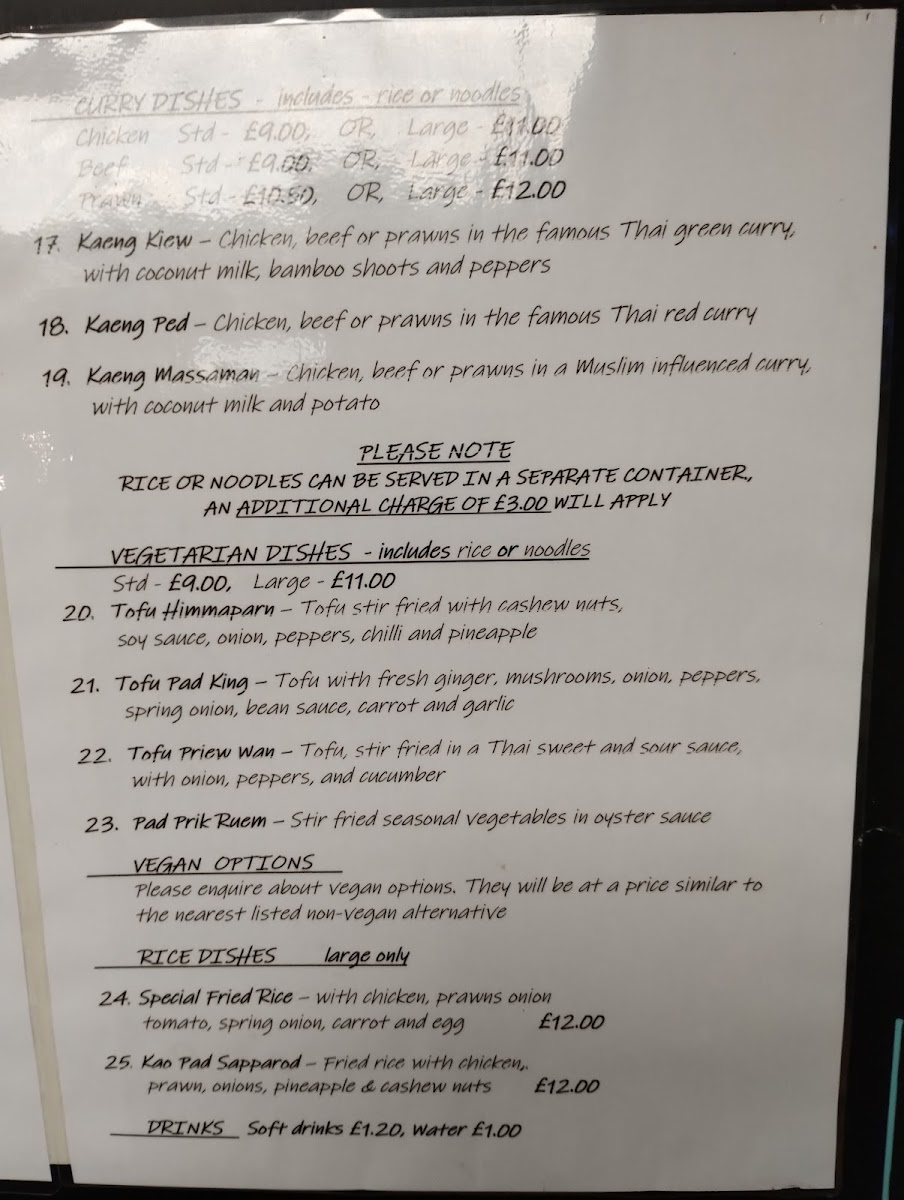 CURRY DISHES - includes - rice or noodles
Chicken Std - £9.00, OR, Large - £11.00
Beef Std - £9.00, OR, Large - £11.00
Prawn Std - £10.50, OR, Large - £12.00
17. Kaeng Kiew – Chicken, beef or prawns in the famous Thai green curry,
with coconut milk, bamboo shoots and peppers
18. Kaeng Ped – Chicken, beef or prawns in the famous Thai red curry
19. Kaeng Massaman – Chicken, beef or prawns in a Muslim influenced curry,
with coconut milk and potato
PLEASE NOTE
RICE OR NOODLES CAN BE SERVED IN A SEPARATE CONTAINER,
AN ADDITIONAL CHARGE OF £3.00 WILL APPLY
VEGETARIAN DISHES - includes rice or noodles
Std - £9.00, Large - £11.00
20. Tofu Himmaparn – Tofu stir fried with cashew nuts,
soy sauce, onion, peppers, chilli and pineapple
21. Tofu Pad King – Tofu with fresh ginger, mushrooms, onion, peppers,
spring onion, bean sauce, carrot and garlic
22. Tofu Priew Wan – Tofu, stir fried in a Thai sweet and sour sauce,
with onion, peppers, and cucumber
23. Pad Prik Ruem – Stir fried seasonal vegetables in oyster sauce
VEGAN OPTIONS
Please enquire about vegan options. They will be at a price similar to
the nearest listed non-vegan alternative
RICE DISHES large only
24. Special Fried Rice – with chicken, prawns onion
tomato, spring onion, carrot and egg £12.00
25. Kao Pad Sapparod – Fried rice with chicken,.
prawn, onions, pineapple & cashew nuts £12.00
DRINKS Soft drinks £1.20, Water £1.00